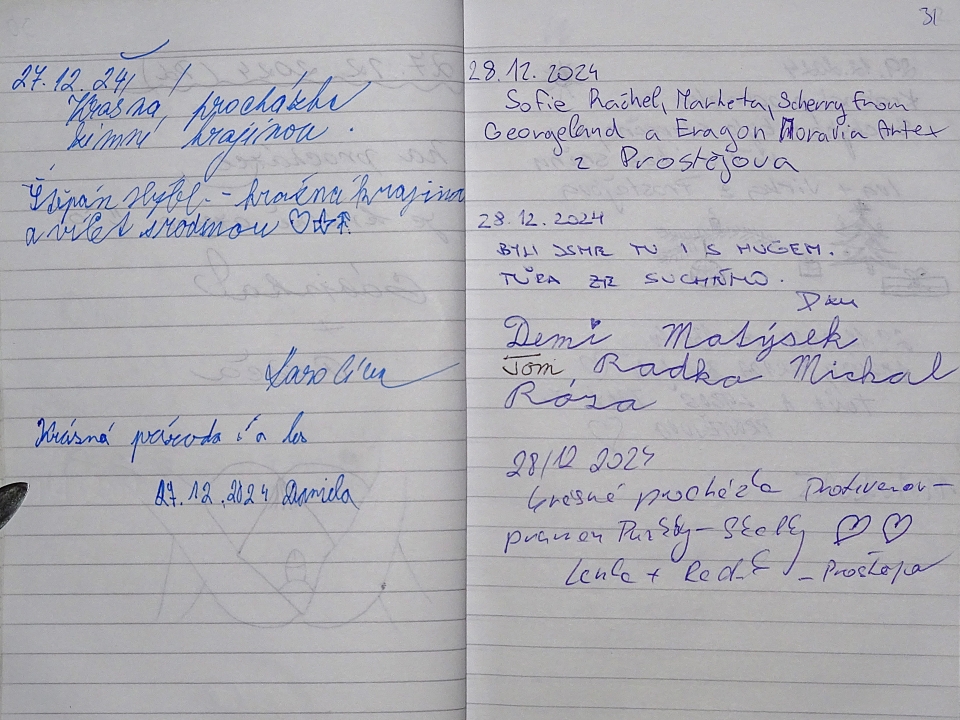 27.12.24
Krásná procházka
zimní krajinou.
Štěpán - krásná krajina
a výlet s rodinou
Karolína
Krásná příroda i a les
27.12.2024 Daniela
31
28.12.2024
Sofie Ráchel, Markéta, Scherry from
Georgeland a Eragon Moravia Artex
z Prostějova
28.12.2024
BYLI JSME TU I S HUGEM.
TÚRA ZE SUCHÉHO.
Demi Matýsek
Tom Radka Michal
Róza
28/12 2024
Krásná procházka Protivanov -
pramen Punkvy - Skály
Lenka + Radek - Prostějov